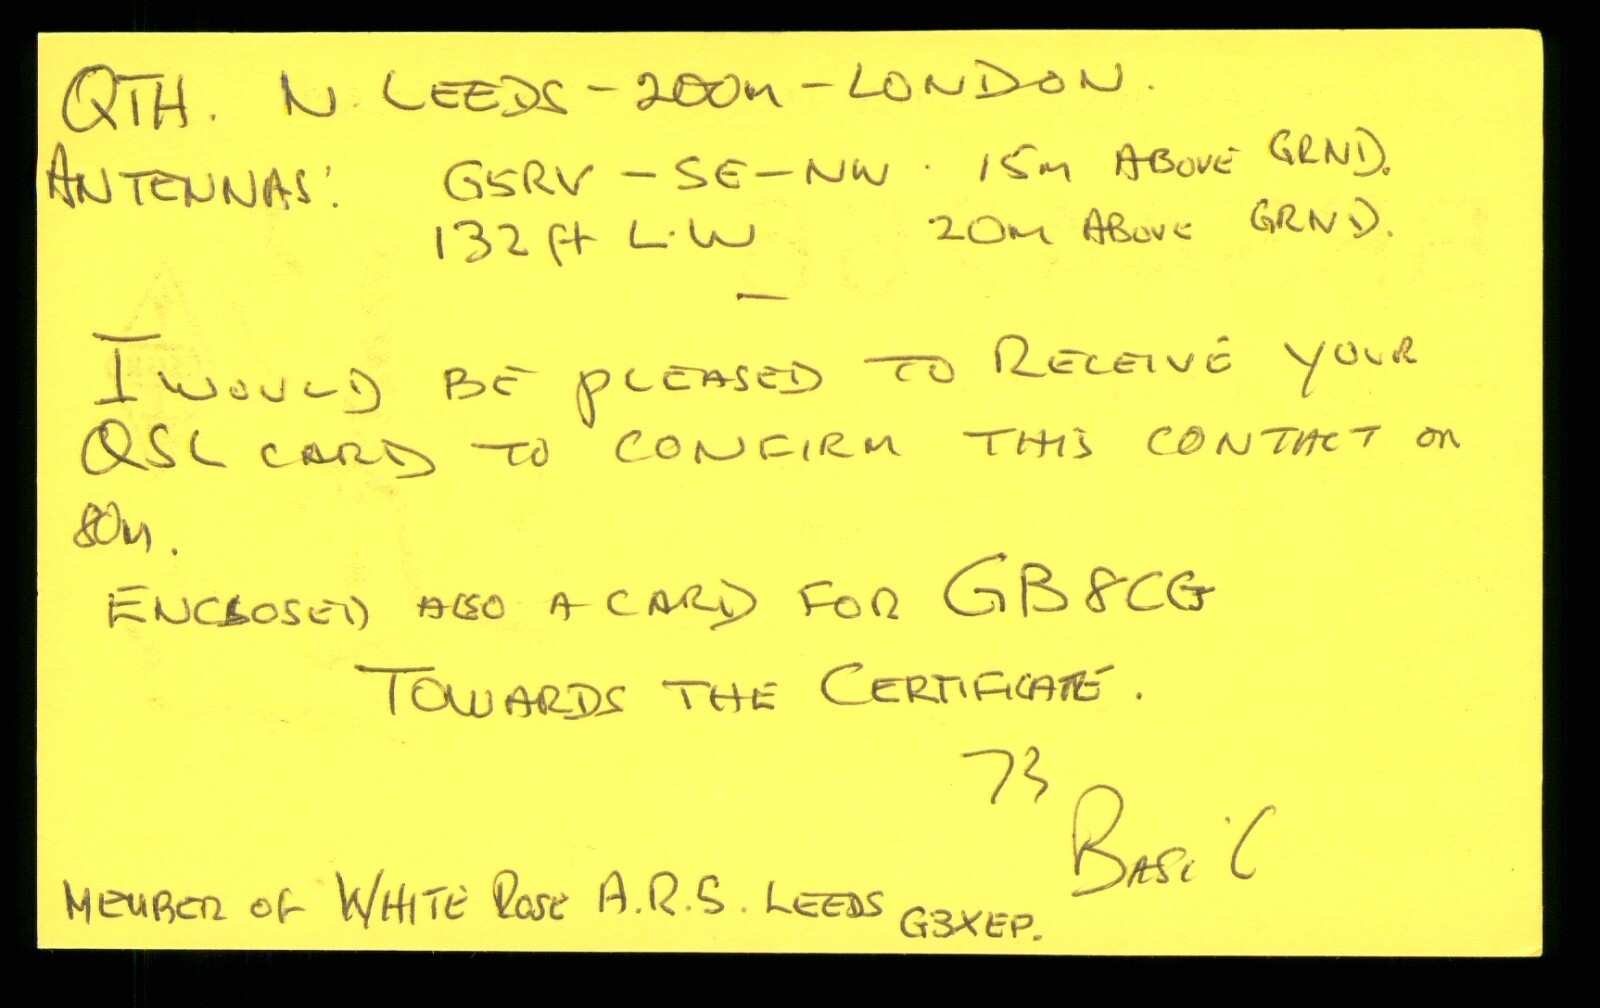 QTH. N. LEEDS - 200m - LONDON.
ANTENNAS: G5RV - SE - NW. 15m ABOVE GRND.
132ft L.W 20m ABOVE GRND.
—
I WOULD BE PLEASED TO RECEIVE YOUR
QSL CARD TO CONFIRM THIS CONTACT ON
80m.
ENCLOSED ALSO A CARD FOR GB8CG
TOWARDS THE CERTIFICATE.
73
BASIL
MEMBER OF WHITE ROSE A.R.S. LEEDS G3XEP.